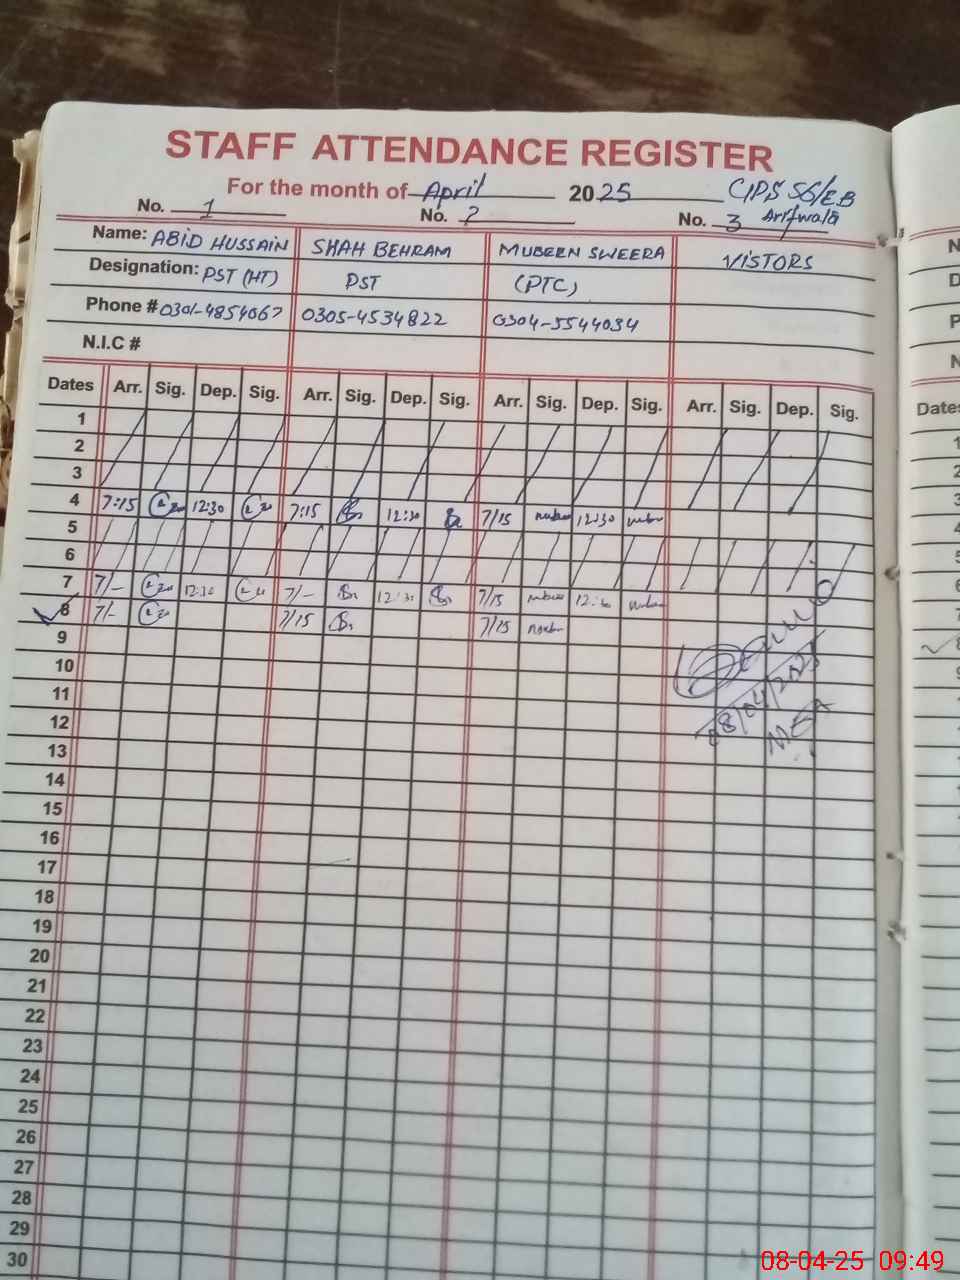 STAFF ATTENDANCE REGISTER
For the month of April 2025 GPS 56/EB
No. 1 No. 2 No. 3 Arifwala
Name: ABID HUSSAIN SHAH BEHRAM MUBEEN SWEERA VISTORS
Designation: PST (HT) PST (PTC)
Phone # 0301-4854067 0305-4534822 0304-5544034
N.I.C #
Dates Arr. Sig. Dep. Sig. Arr. Sig. Dep. Sig. Arr. Sig. Dep. Sig. Arr. Sig. Dep. Sig.
1
2
3
4 7:15 12:30 7:15 12:30 7/15 12:30
5
6
7 7/- 12:30 7/- 12:30 7/15
8 7/- 7/15 7/15
9
10
11
08/04/2025
12
13
14
15
16
17
18
19
20
21
22
23
24
25
26
27
28
29
30
Dates
08-04-25 09:49